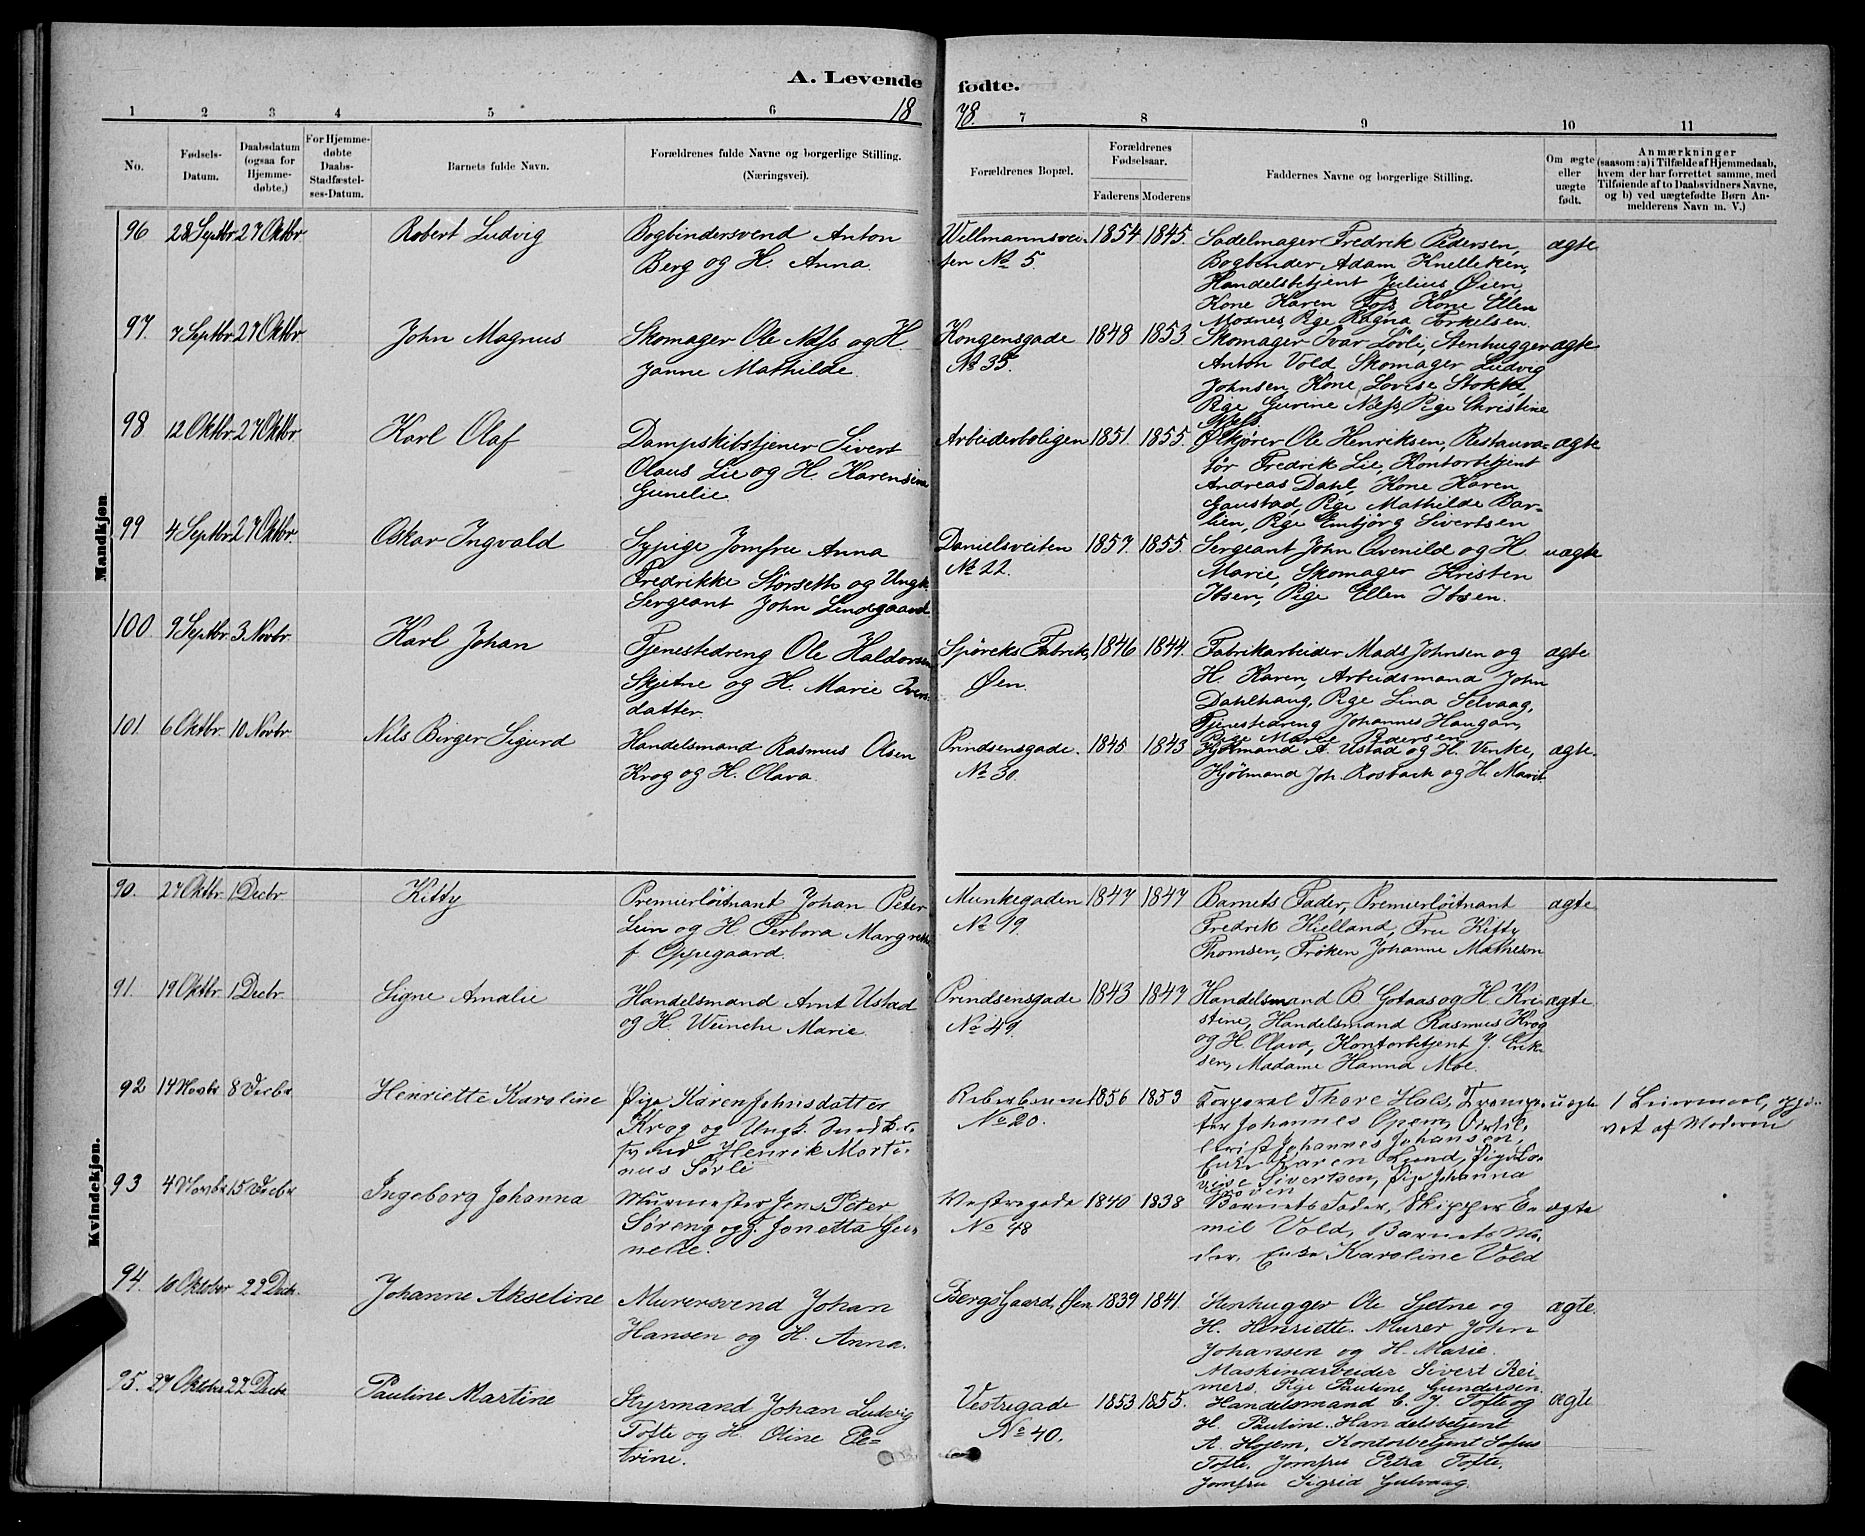 A. Levende fødte.
18 78.
1 2 3 4 5 6 7 8 9 10 11
No.
Fødsels-
Datum.
Daabsdatum
(ogsaa for
Hjemme-
døbte.)
For Hjemme-
døbte
Daabs-
Stadfæstel-
ses-Datum.
Barnets fulde Navn.
Forældrenes fulde Navne og borgerlige Stilling.
(Næringsvei).
Forældrenes Bopæl.
Forældrenes
Fødselsaar.
Faderens Moderens
Faddernes Navne og borgerlige Stilling.
Om ægte
eller
uægte
født.
Anmærkninger
(saasom: a) i Tilfælde af Hjemmedaab,
hvem der har forrettet samme, med
Tilføiende af to Daabsvidners Navne,
og b) ved uægtefødte Børn An-
melderens Navn m. V.)
Mandkjøn.
96 28 Septbr 27 Oktbr Robert Ludvig
Bogbindersvend Anton
Berg og H. Anna.
Willmannsvei-
ten No 5.
1854. 1845.
Sadelmager Fredrik Pedersen,
Bogbinder Adam Knelleken,
Handelsbetjent Julius Øien,
Kone Karen Fox, Kone Ellen
Mosnes, Pige Ragna Torkelsen.
ægte
97. 7 Septbr 27 Oktbr. John Magnus
Skomager Ole Næss og H.
Janne Mathilde.
Kongensgade
No 35.
1848 1853.
Skomager Ivar Lørli, Stenhugger
Anton Vold, Skomager Ludvig
Johnsen, Kone Lovise Stokke,
Pige Gurine Næss, Pige Christine
Næss.
ægte
98 12 Oktbr 27 Oktbr Karl Olaf
Dampskibstjener Sivert
Olaus Lie og H. Karensine
Gunelie
Arbeiderboligen 1851. 1855.
Ølkjører Ole Henriksen, Restaura-
tør Fredrik Lie, Kontorbetjent
Andreas Dahl, Kone Karen
Gaustad, Pige Mathilde Bar-
lien, Pige Embjørg Sivertsen
ægte
99 4 Septbr 27 Oktbr. Oskar Ingvald
Sypige Jomfru Anna
Fredrikke Størseth og Ungk.
Sergeant John Lindgaard.
Danielsveiten
No 22.
1857. 1855.
Sergeant John Qvenild og H.
Marie, Skomager Kristen
Ibsen, Pige Ellen Ibsen.
uægte
100 9 Septbr. 3. Novbr. Karl Johan
Tjenestedreng Ole Haldorsen
Skjetne og H. Marie Ivers-
datter.
Spøreks Fabrik,
Øen.
1846 1844.
Fabrikarbeider Mads Johnsen og
H. Karen, Arbeidsmand John
Dahlhaug, Pige Lina Selvaag,
Tjenestedreng Johannes Haugan,
Pige Marie Pedersen
ægte
101. 6 Oktbr. 10 Novbr Nils Birger Sigurd
Handelsmand Rasmus Olsen
Krog og H. Olava.
Prindsensgade.
No 30.
1845 1843
Kjølmand A. Ustad og H. Venke,
Kjølmand Joh. Rosbach og H. Marit
ægte.
Kvindekjøn.
90. 27 Oktbr 1 Decbr Kitty
Premierløitnant Johan Peter
Lein og H. Margrethe
f. Oppegaard.
Munkegaden
No 99.
1847 1847
Barnets Fader, Premierløitnant
Fredrik Kielland, Fru Kitty
Thomsen, Frøken Johanne Matheson
ægte
91. 19 Oktbr. 1 Decbr. Signe Amalie
Handelsmand Arnt Ustad
og H. Wenche Marie.
Prindsensgade
No 49.
1843 1847
Handelsmand B. Gotaas og H. Kri-
stine, Handelsmand Rasmus Krog
og H. Olava, Kontorbetjent J. Erik-
sen, Madame Hanna Moe.
ægte.
92 14 Novbr 8 Decbr Henriette Karoline
Pige Karen Johnsdatter
Krog og Ungk. Snedker-
svend Henrik Marti-
nus Sørli
No 20.
1856 1853
Korporal Thore Hals, Trompe-
ter Johannes Opem, Artil-
lerist Johannes Johansen,
Enke Karen Lund, Pige Lo-
vise Sivertsen, Pige Johanna
uægte
1 Leiermaal, opgi-
vet af Moderen
93 4 Novbr 15 Decbr Ingeborg Johanna
Murmester Jens Peter
Søreng og H. Jonetta Gu-
nelie.
Vestregade
No 48
1840 1838
Barnets Fader, Skipper E-
mil Vold, Barnets Mo-
der, Enke Karoline Vold
ægte
94. 10 Oktober 22 Decb. Johanne Akseline
Murersvend Johan
Hansen og H. Anna.
Bergs Gaard, Øen. 1839 1841.
Stenhugger Ole Sjetne og
H. Henriette. Murer John
Johansen og H. Marie.
Maskinarbeider Sivert Rei-
mers. Pige Pauline Gundersen.
ægte.
95. 27 Oktober 22 Decbr Pauline Martine
Styrmand Johan Ludvig
Tofte og H. Oline Pe-
trine.
Vestregade
No 40.
1853 1855.
Handelsmand C. J. Tofte og
H. Pauline. Handelsbetjent
A. Hojem, Kontorbetjent Sofus
Tofte. Jomfru Petra Tofte.
Jomfru Sigrid Gulvaag.
ægte